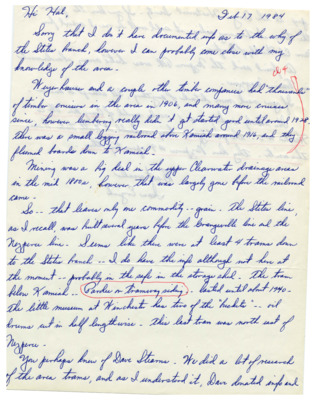 Hi Hal,
Feb 17 1984
Sorry that I don't have documented info as to the why of
the Stites Branch, however I can probably come close with my
knowledge of the area.
Weyerhaeuser and a couple other timber companies had "thousands"
of timber cruisers in the area in 1906, and many more cruisers
since, however lumbering really didn't get started good until around 1928.
there was a small logging railroad above Kamiah around 1916, and they
flumed boards down to Kamiah.
Mining was a big deal in the upper Clearwater drainage area
in the mid 1800s, however that was largely gone before the railroad
came.
So -- that leaves only one commodity -- grain. The Stites line,
as I recall, was built several years before the Grangeville line and the
Nezperce line. Seems like there were at least 4 trams down
to the Stites branch -- I do have the info although not here at
the moment -- probably in the safe in the storage shed. The tram
below Kamiah -- Pardee or tramway siding - lasted until about 1940.
The little museum at Winchester has two of the "buckets" -- oil
drums cut in half lengthwise. this last tram was north east of
Nezperce.
You perhaps knew of Dave Stearns. We did a lot of research
of the area trams, and as I understood it, Dave donated info and